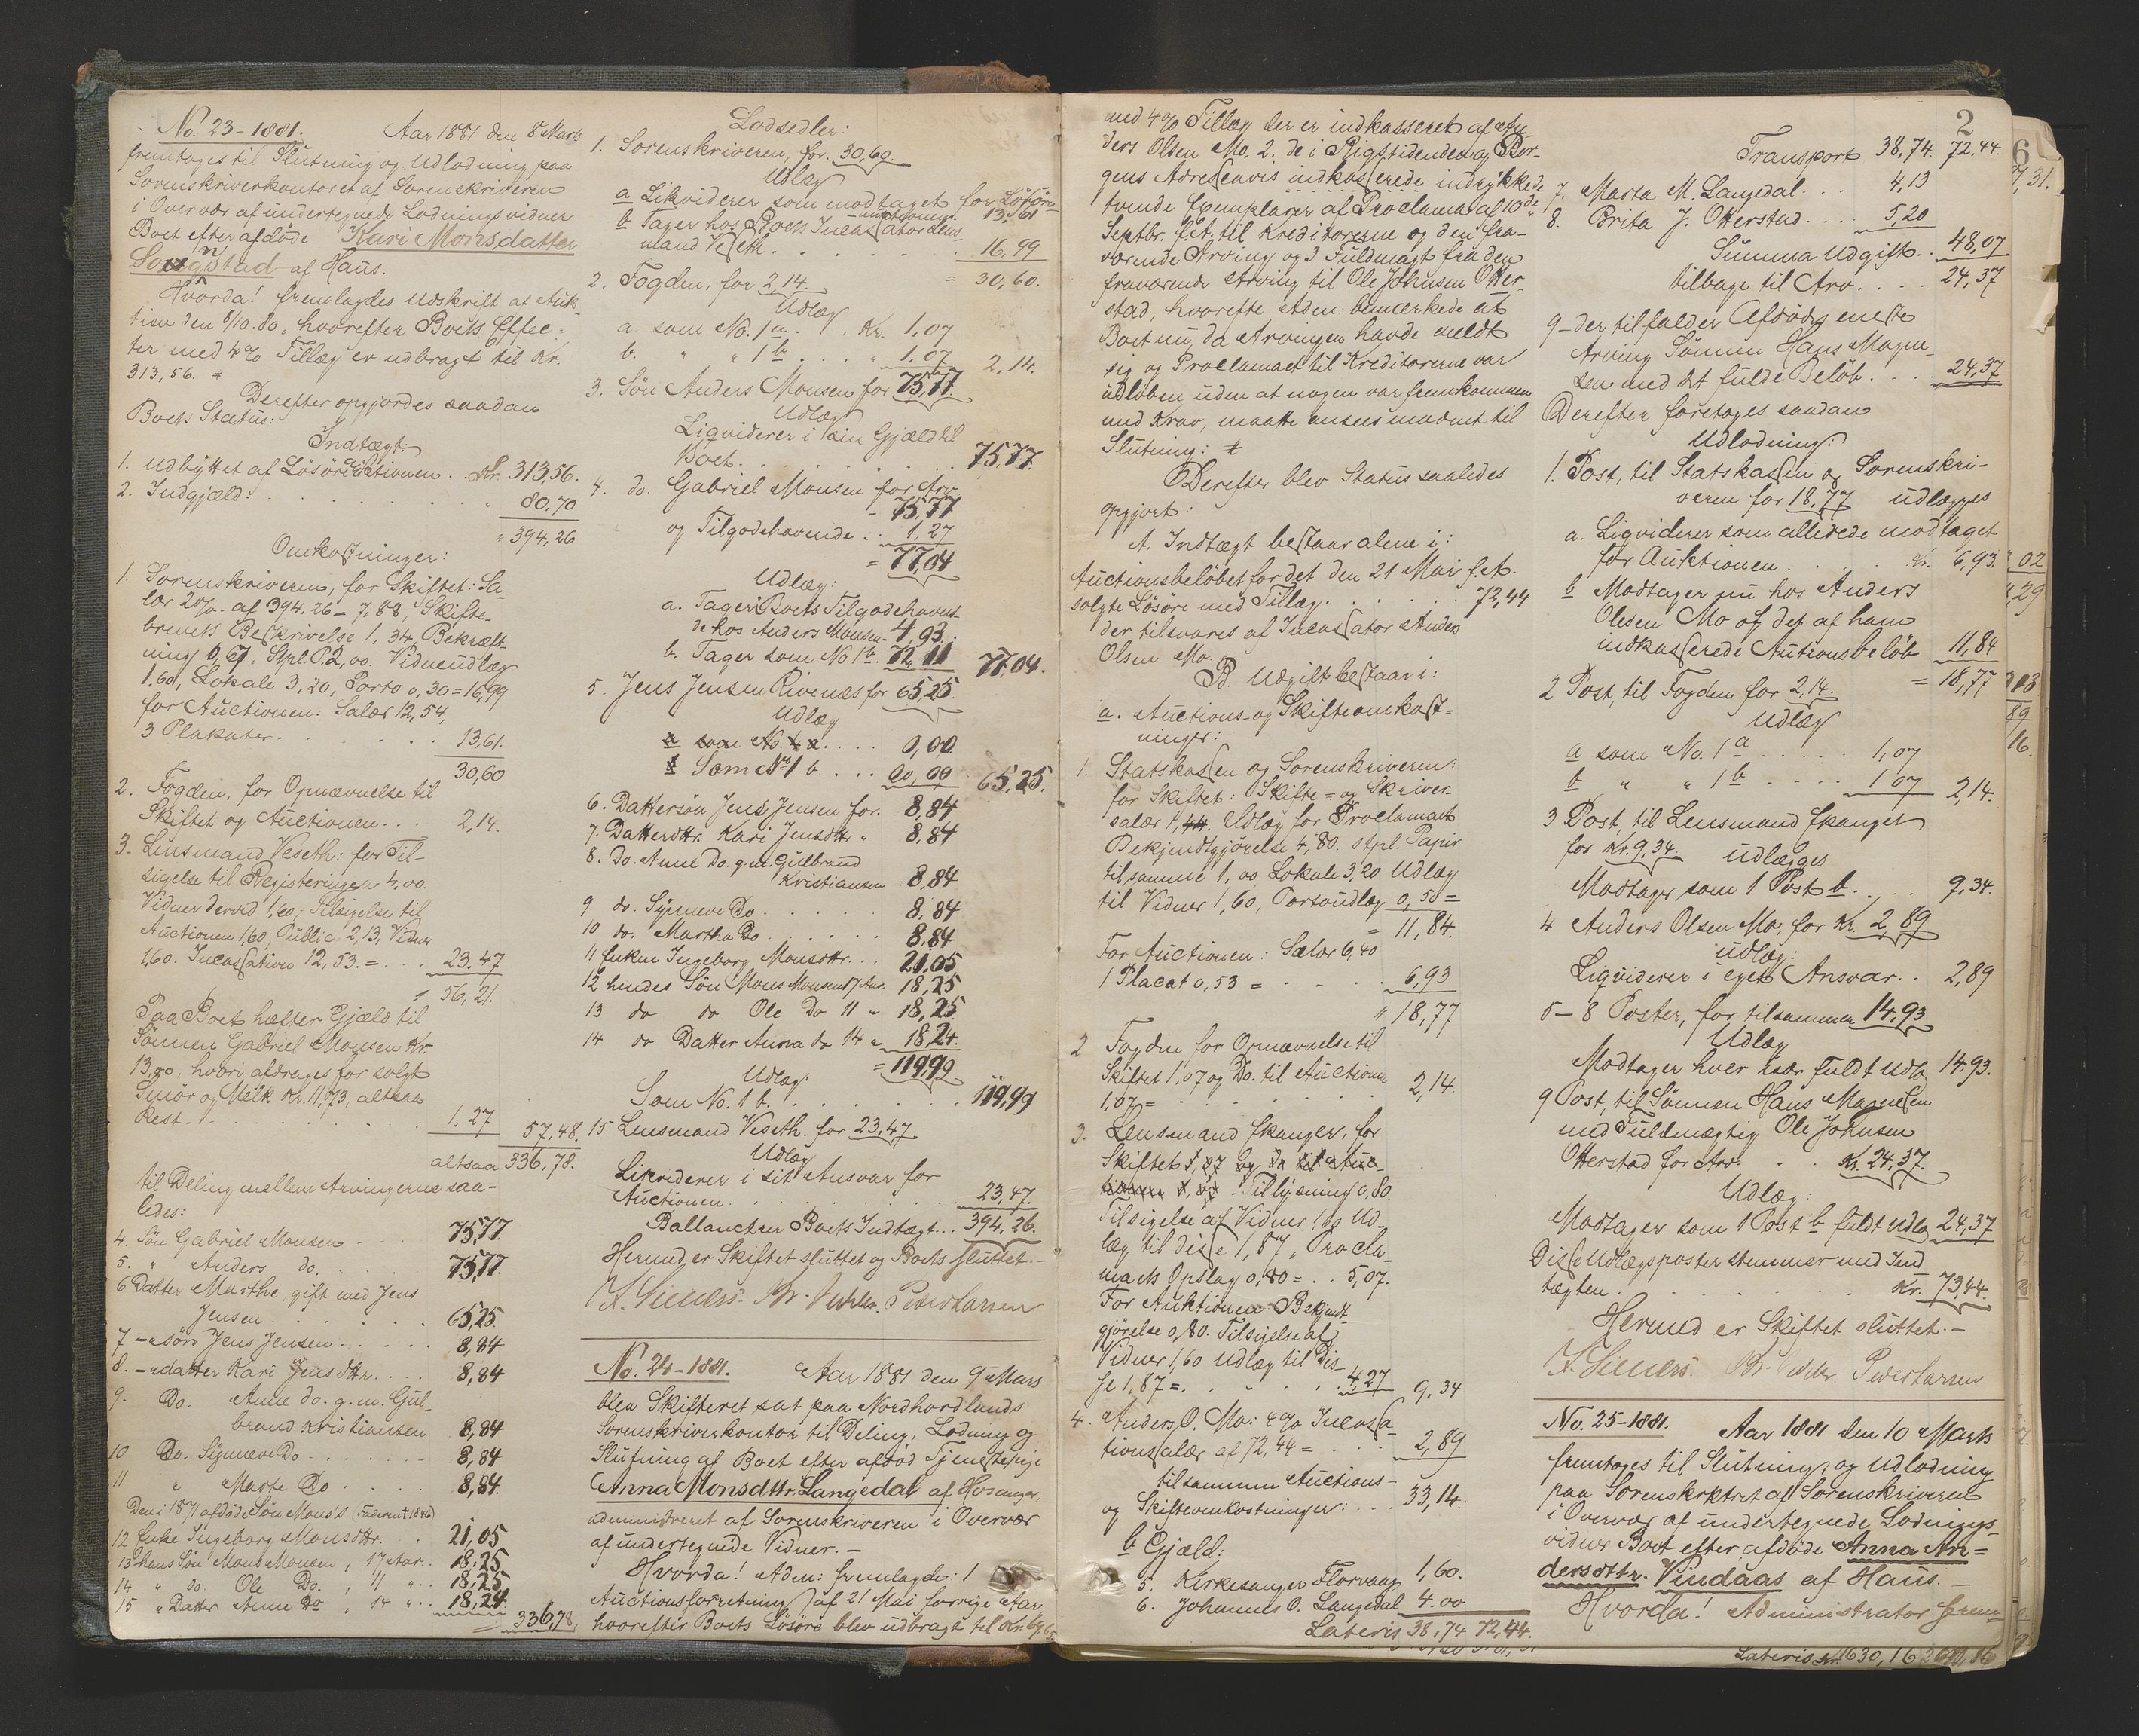 No. 23-1881. Aar 1881 den 8 Marts
fremtoges til Slutning og Udlodning paa
Sorenskriverkontoret af Sorenskriveren
i Overvær af undertegnede Lodningsvidner
Boet efter afdöde Kari Monsdatter
af Haus.
Hvorda! fremlagdes Udskrift at Auk-
tion den 8/10.80, hvorefter Boets Effec-
ter med 4% Tillæg er udbragt til Kr.
313,56.
Derefter opgjordes saadan
Boets Status:
Indtægt:
1. Udbyttet af Lösöreauctionen . . Kr. 313,56.
2. Indgjæld: . . . " 80,70
" 394,26
Omkostninger:
1. Sorenskriveren, for Skiftet: Sa-
lær 2% af 394.26 - 7,88, Skifte-
brevets Beskrivelse 1,34. Bekræft-
ning 0,67. Stpl. P. 2,00. Vidneudlæg
1.60, Lokale 3,20, Porto 0,30 = 16,99
for Auctionen: Salær 12,54,
3 Plakater . . . 13,61.
30,60
2. Fogden, for Opnævnelse til
Skiftet og Auctionen . . . 2,14.
3. Lensmand Veseth: for Til-
sigelse til Registeringen 4.00.
Vidner derved 1,60, Tilsigelse til
Auctionen 1,60, Public. 2,13, Vidner
1,60. Incassation 12,53. = . . . 23.47
" 56,21.
Paa Boet hæfter Gjæld til
Sönnen Gabriel Monsen Kr.
13.00, hvori afdrages for solgt
Smör og Mælk Kr. 11,73, altsaa
Rest . . . 1.27 57,48.
altsaa 336,78.
til Deling mellem Arvingerne saa-
ledes:
4. Sön Gabriel Monsen . . . 75,77
5. " Anders do. . . . 75,77
6 Datter Marthe, gift med Jens
Jensen . . . 65,25.
7 - sön Jens Jensen . . . 8,84
8. - datter Kari Jensdttr. . . . 8,84
9. Do. Anne do. g. m. Gul-
brand Kristiansen 8,84
10 Do. Synneve Do . . . 8,84
11 " Marte Do . . . 8,84.
Den i 1871 afdöde Sön Mons's
12 Enke Ingeborg Monsdttr. . . 21,05
13 hans Sön Mons Monsen, 17 Aar . . 18,25
14 " do. Ole Do. , 11 " . . 18,25
15 " Datter Anne Do , 14 " . . 18,24.
336,78.
Lodsedler:
1. Sorenskriveren, for 30,60.
Udlæg
a Likviderer som modtaget for Lösöre-
auctionen . 13,61
b Tager hos Boets Incassator Lens-
mand Veseth . . . 16,99
= 30,60.
2. Fogden, for 2,14.
Udlæg
a som No. 1 a . . Kr. 1,07
b. " " 1 b . . . " 1,07 2,14.
3. Sön Anders Monsen for 75,77.
Udlæg
Liqviderer i sin Gjæld til
Boet . . . 75,77.
4. do. Gabriel Monsen for Arv
- 75,77
og Tilgodehavende . . 1,27
= 77,04
Udlæg:
a. Tager Boets Tilgodehavend-
de hos Anders Monsen - 4,93.
b. Tager som No 1 b. 72,11 77,04.
5. Jens Jensen Rivenæs for 65,25.
Udlæg
a som No. 4 a . . . 0,00
b Som No 1 b . . . 00,00 65,25.
6. Dattersön Jens Jensen for. 8,84
7. Datterdttr. Kari Jensdttr " 8,84
8. Do. Anne Do. g. m. Gulbrand
Kristiansen 8,84
9 do. Synneve Do . . . 8,84
10 do. Martha Do . . . 8,84
11 Enken Ingeborg Monsdttr. . . 21,05
12 hendes Sön Mons Monsen 17 Aar. 18,25
13 do do Ole Do 11 " 18,25.
14 do Datter Anna do 14 " 18,24.
= 119,99
Udlæg:
Som No. 1 b . . . 119,99
15 Lensmand Veseth. for 23,47
Udlæg
Likviderer i sit Ansvar for
Auctionen . . . 23,47.
Ballancken Boets Indtægt . . . 394,26.
Hermed er Skiftet sluttet og Boets sluttet.
Peder Larsen
No. 24-1881. Aar 1881 den 9 Mars
blev Skifteret sat paa Nordhordlands
Sorenskriverkontor til Deling, Lodning og
Slutning af Boet efter afdöd Tjenestepige
Anna Monsdttr. Langedal af Hosanger,
administreret af Sorenskriveren i Overvær
af undertegnede Vidner. -
Hvorda! Adm: fremlagde: 1
Auctionsforretning af 21 Mai forrige Aar,
hvorefter Boets Lösöre blev udbragt til Kr. 69,65
med 4% Tillæg der er indkasseret af An-
ders Olsen Mo. 2. de i Rigstidenden og Ber-
gens Adresseavis indkasserede indrykkede
tvende Exemplarer af Proclama af 10de
Septbr. f. A. til Kreditorerne og den fra-
værende Arving og 3 Fuldmagt fra den
fraværende Arving til Ole Johnsen Otter-
stad, hvorefte Adm: bemærkede at
Boet nu, da Arvingen havde meldt
sig og Proclamaet til Kreditorerne var
udlöben uden at nogen var fremkommen
med Krav, maatte ansees modent til
Slutning.
Derefter blev Status saaledes
opgjort:
A. Indtægt bestaar alene i:
Auctionsbelöbet for det den 21 Mai f. A.
solgte Lösöre med Tillæg . . . 72,44
der tilsvares af Incassator Anders
Olsen Mo.
B. Udgift bestaar i:
a. Auctions- og Skifteomkost-
ninger:
1. Statskassen og Sorenskriveren:
for Skiftet: Skifte- og Skriver-
salær 1,44. Udlæg for Proclamaets
Bekjendtgjörelse 4,80. Stpl. Papir
til samme 1,00 Lokale 3,20 Udlæg
til Vidner 1,60, Portoudlæg 0,50 =
= 11,84.
For Auctionen: Salær 6,40
1 Placat 0,53 = . . . 6,93
" 18,77
2 Fogden for Opnævnelse til
Skiftet 1,07 og Do. til Auctionen
1,07 = . . . 2,14.
3. Lensmand Skanger, for
Skiftet
Tillysning 0,80.
Tilsigelse af Vidner 1,60 Ud-
læg til disse 1,87, Procla-
maets Opslag 0,80 = . . 5,07.
For Auktionen - Bekjendt-
gjörelse 0,80. Tilsigelse af
Vidner 1,60 Udlæg til dis-
se 1,87 = . . . 4,27 9,34
4. Anders O. Mo: 4% Incassa-
tionssalær af 72,44 = . . . 2,89
tilsammen Auctions-
og Skifteomkostninger: . . . 33,14.
b Gjæld:
5. Kirkesanger Florvaag 1,60.
6. Johannes O. Langedal 4.00
Lateris 38,74 72,44.
2
Transport 38,74. 72,44.
7. Marta M. Langedal . . . 4,13
8. Brita J. Otterstad . . . 5,20
Summa Udgift . . 48,07
tilbage til Arv . . . 24,37
9 - der tilfalder Afdödes eneste
Arving Sönnen Hans Magne-
sen med det fulde Belöb . . . 24,37
Derefter foretoges saadan
Udlodning:
1. Post, til Statskassen og Sorenskri-
veren for 18,77 udlægges
a. Liqviderer som allerede modtaget
for Auktionen . . . Kr. 6,93
b Modtager nu hos Anders
Olsen Mo af det af ham
indkasserede Auctionsbelöb 11,84
= 18,77
2 Post, til Fogden for 2,14.
Udlæg
a som No. 1 a . . . 1,07
b " " 1 b . . . 1,07 2,14.
3 Post, til Lensmand Skanger
for Kr. 9,34. udlægges
Modtager som 1 Post b . . . 9,34.
4 Anders Olsen Mo, for Kr. 2,89
Udlæg:
Liqviderer i eget Ansvar . . 2,89
5-8 Poster, for tilsammen 14,93
Udlæg
Modtager hver især fuldt Udlæg 14,93.
9 Post, til Sönnen Hans Magnesen
med Fuldmægtig Ole Johnsen
Otterstad for Arv . . . Kr. 24,37.
Udlæg:
Modtager som 1 Post b fuldt Udlæg 24,37
Disse Udlægsposter stemmer med Ind-
tægten . . . Kr. 73,44.
Hermed er Skiftet sluttet. -
Peder Larsen
No. 25-1881. Aar 1881 den 10 Marts
fremtoges til Slutning og Udlodning
paa Sorenskrktret af Sorenskriveren
i Overvær af undertegnede Lodnings-
vidner Boet efter afdöde Anna An-
dersdttr. Vindaas af Haus. -
Hvorda! Administrator frem-
Lateris Kr. 1630,16